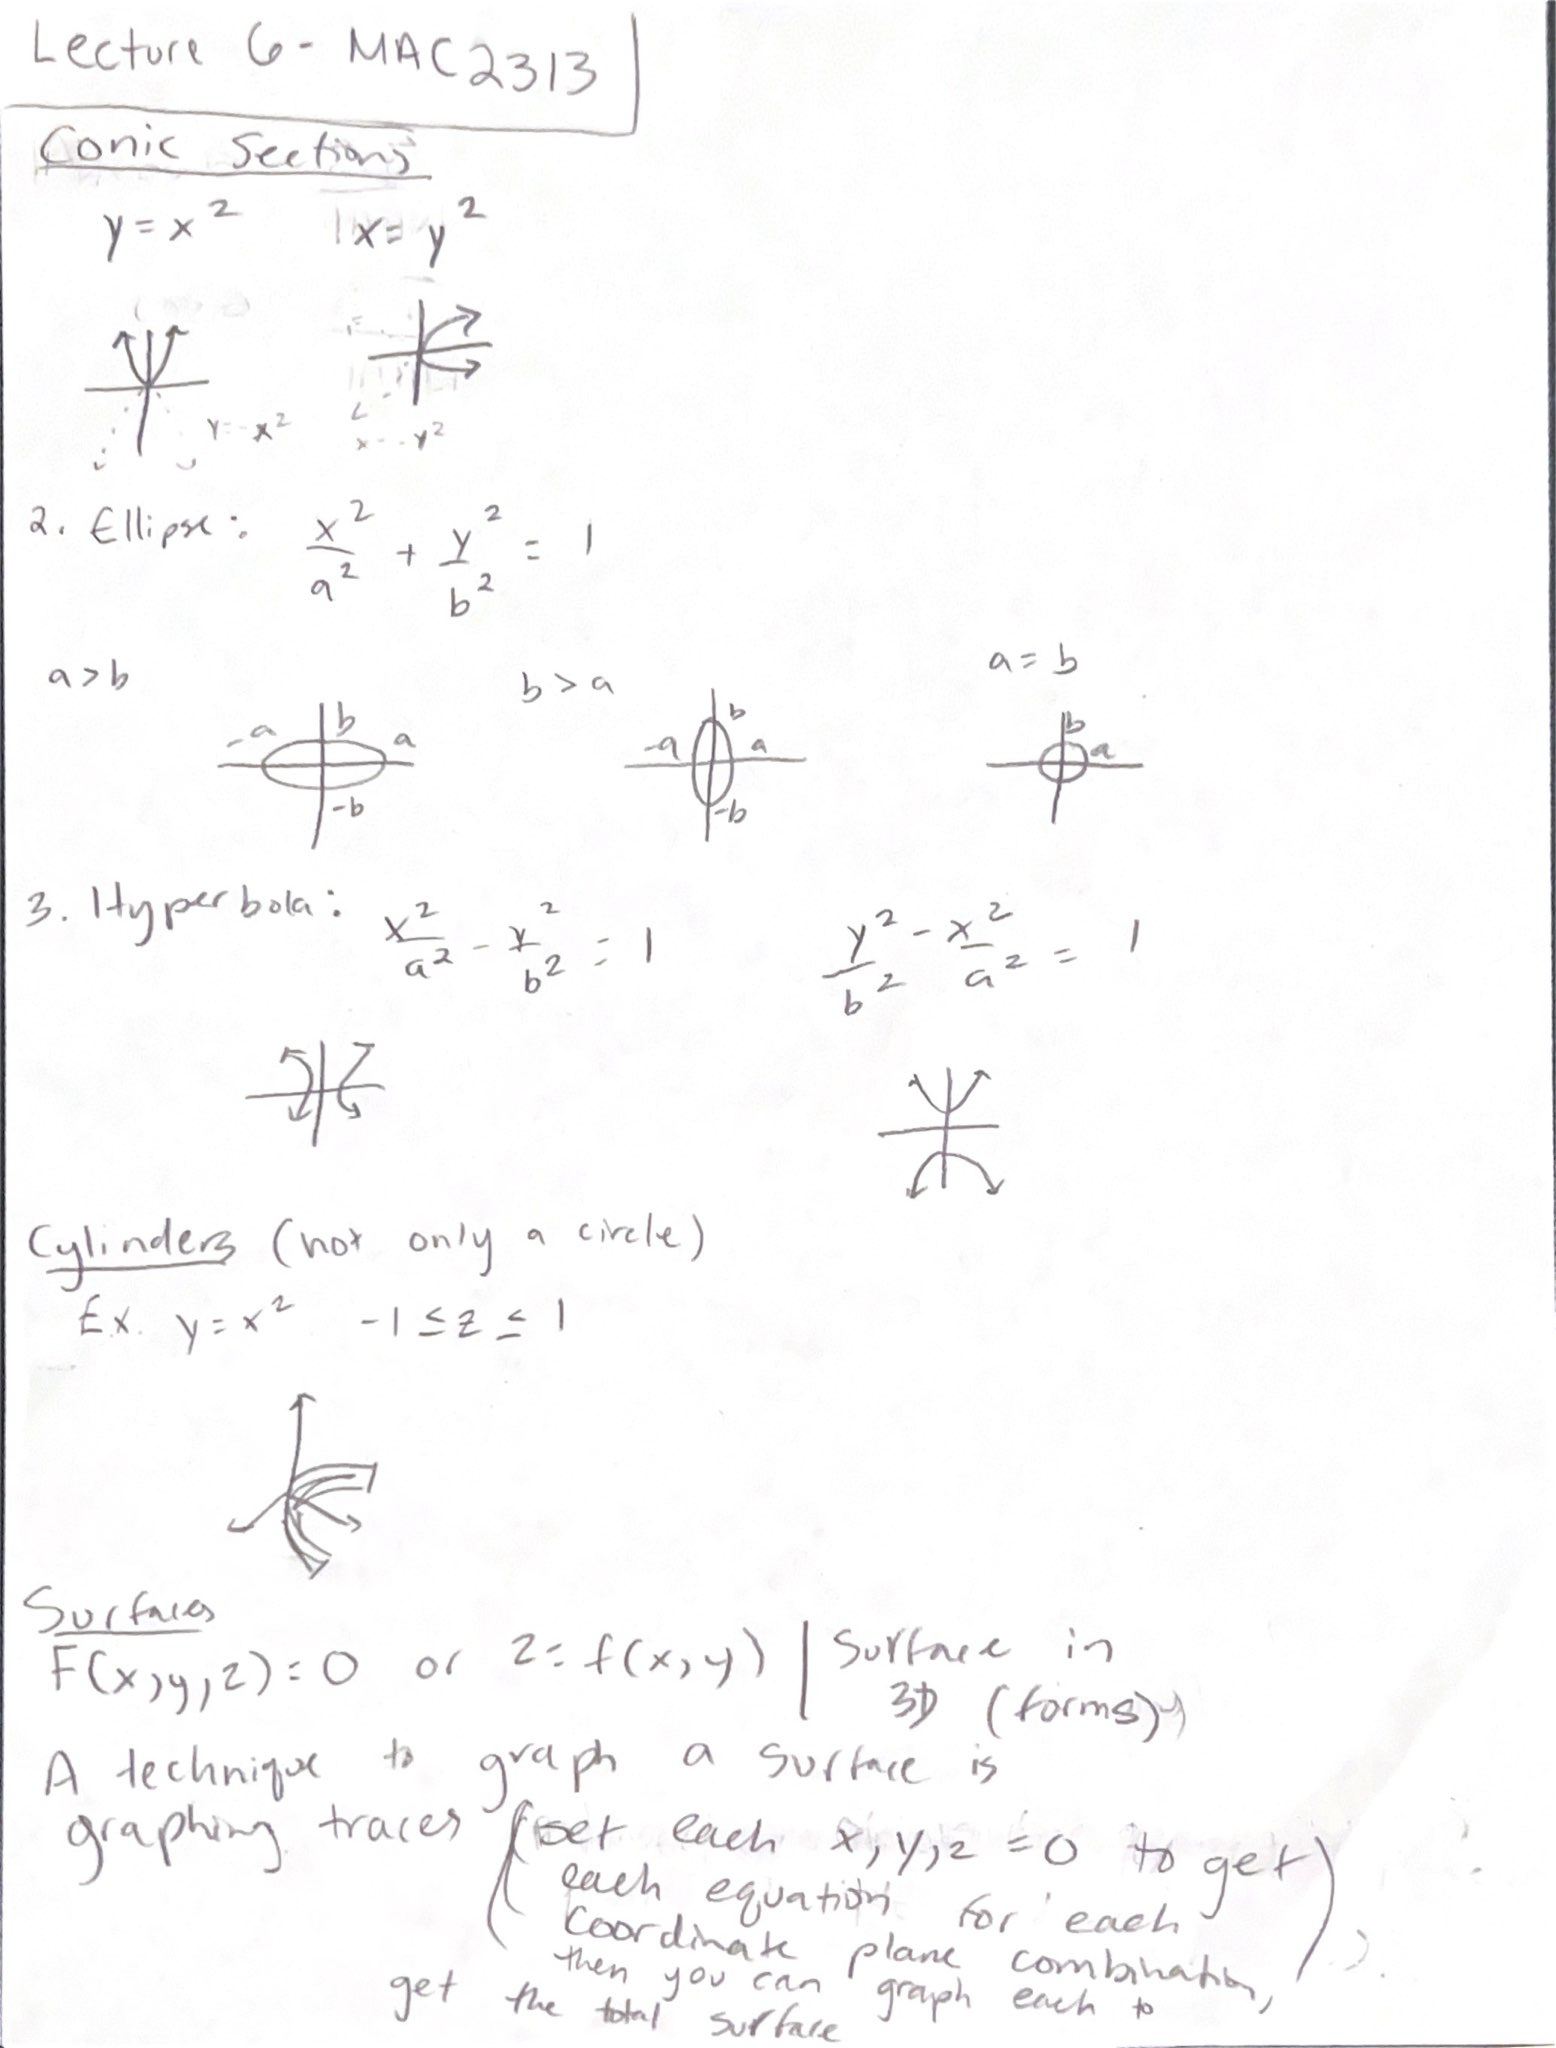 Lecture 6 - MAC2313
Conic Sections
y = x² x = y²
y = -x² x = -y²
2. Ellipse: x²/a² + y²/b² = 1
a > b b > a a = b
-a b a -b -a b a -b b a
3. Hyperbola: x²/a² - y²/b² = 1 y²/b² - x²/a² = 1
Cylinders (not only a circle)
Ex. y = x² -1 ≤ z ≤ 1
Surfaces
F(x,y,z) = 0 or z = f(x,y) | Surface in
3D (forms)
A technique to graph a surface is
graphing traces (set each x,y,z = 0 to get
each equation for each
coordinate plane combination,
then you can graph each to
get the total surface)